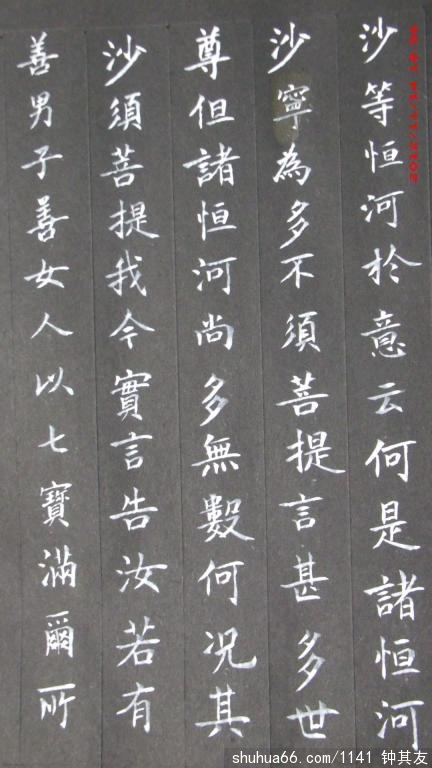 沙等恒河於意云何是諸恒河
沙寧為多不須菩提言甚多世
尊但諸恒河尚多無數何況其
沙須菩提我今實言告汝若有
善男子善女人以七寶滿爾所
shuhua66.com/1141 钟其友